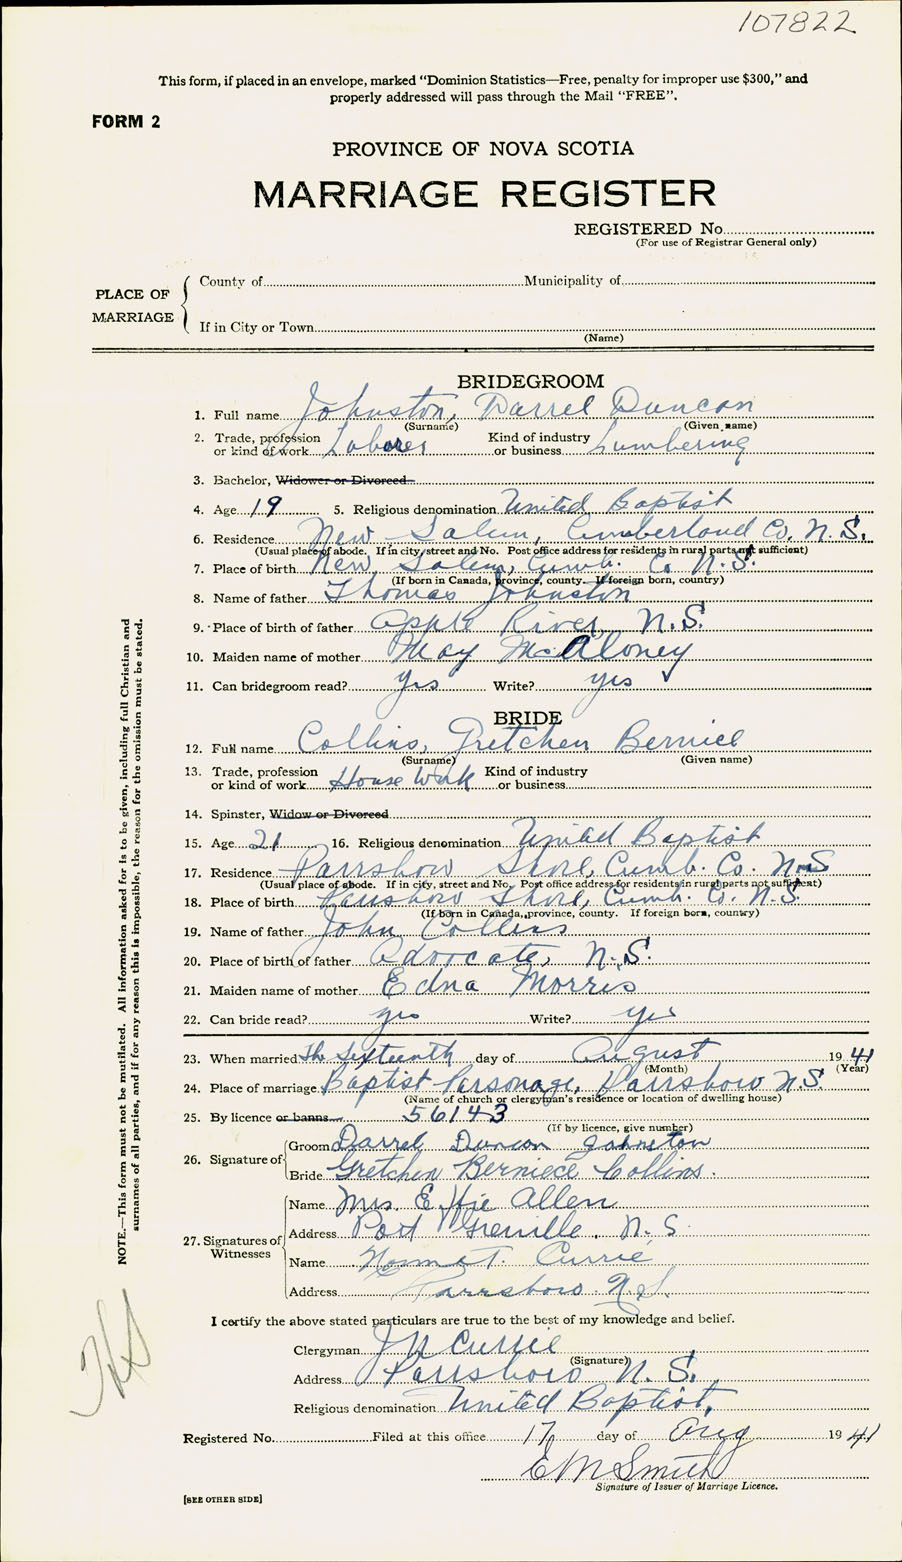 107822
This form, if placed in an envelope, marked "Dominion Statistics—Free, penalty for improper use $300," and
properly addressed will pass through the Mail "FREE".
FORM 2
PROVINCE OF NOVA SCOTIA
MARRIAGE REGISTER
REGISTERED No.
(For use of Registrar General only)
PLACE OF MARRIAGE
County of Municipality of
If in City or Town
(Name)
BRIDEGROOM
1. Full name Johnston, Darrel Duncan
(Surname) (Given name)
2. Trade, profession or kind of work Laborer Kind of industry or business Lumbering
3. Bachelor, Widower or Divorced
4. Age 19 5. Religious denomination United Baptist
6. Residence New Salem, Cumberland Co. N.S.
(Usual place of abode. If in city, street and No. Post office address for residents in rural parts not sufficient)
7. Place of birth New Salem, Cumb. Co N.S.
(If born in Canada, province, county. If foreign born, country)
8. Name of father Thomas Johnston
9. Place of birth of father Apple River, N.S.
10. Maiden name of mother May McAloney
11. Can bridegroom read? yes Write? yes
BRIDE
12. Full name Collins, Gretchen Berniece
(Surname) (Given name)
13. Trade, profession or kind of work House Work Kind of industry or business
14. Spinster, Widow or Divorced
15. Age 21 16. Religious denomination United Baptist
17. Residence Parrsboro Shore, Cumb. Co. N.S
(Usual place of abode. If in city, street and No. Post office address for residents in rural parts not sufficient)
18. Place of birth Parrsboro Shore, Cumb. Co. N.S.
(If born in Canada, province, county. If foreign born, country)
19. Name of father John Collins
20. Place of birth of father Advocate, N.S.
21. Maiden name of mother Edna Morris
22. Can bride read? yes Write? yes
23. When married The Sixteenth day of August 1941
(Month) (Year)
24. Place of marriage Baptist Parsonage, Parrsboro N.S.
(Name of church or clergyman's residence or location of dwelling house)
25. By licence or banns 56143
(If by licence, give number)
26. Signature of
Groom Darrel Duncan Johnston
Bride Gretchen Berniece Collins.
27. Signatures of Witnesses
Name Mrs. Effie Allen
Address Port Greville. N.S
Name T. Currie
Address Parrsboro. N.S.
I certify the above stated particulars are true to the best of my knowledge and belief.
Clergyman J N Currie
(Signature)
Address Parrsboro N.S.
Religious denomination United Baptist.
Registered No. Filed at this office 17 day of Aug 1941
E M Smith
Signature of Issuer of Marriage Licence.
[SEE OTHER SIDE]
NOTE.—This form must not be mutilated. All information asked for is to be given, including full Christian and
surnames of all parties, and if for any reason this is impossible, the reason for the omission must be stated.